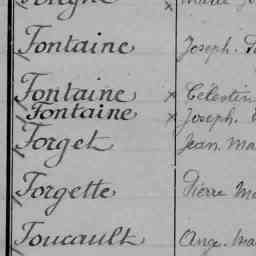 Fontaine Joseph.
Fontaine x Célestin
Fontaine x Joseph.
Forget Jean. Ma
Forgette Pierre Ma
Foucault Ange. Ma